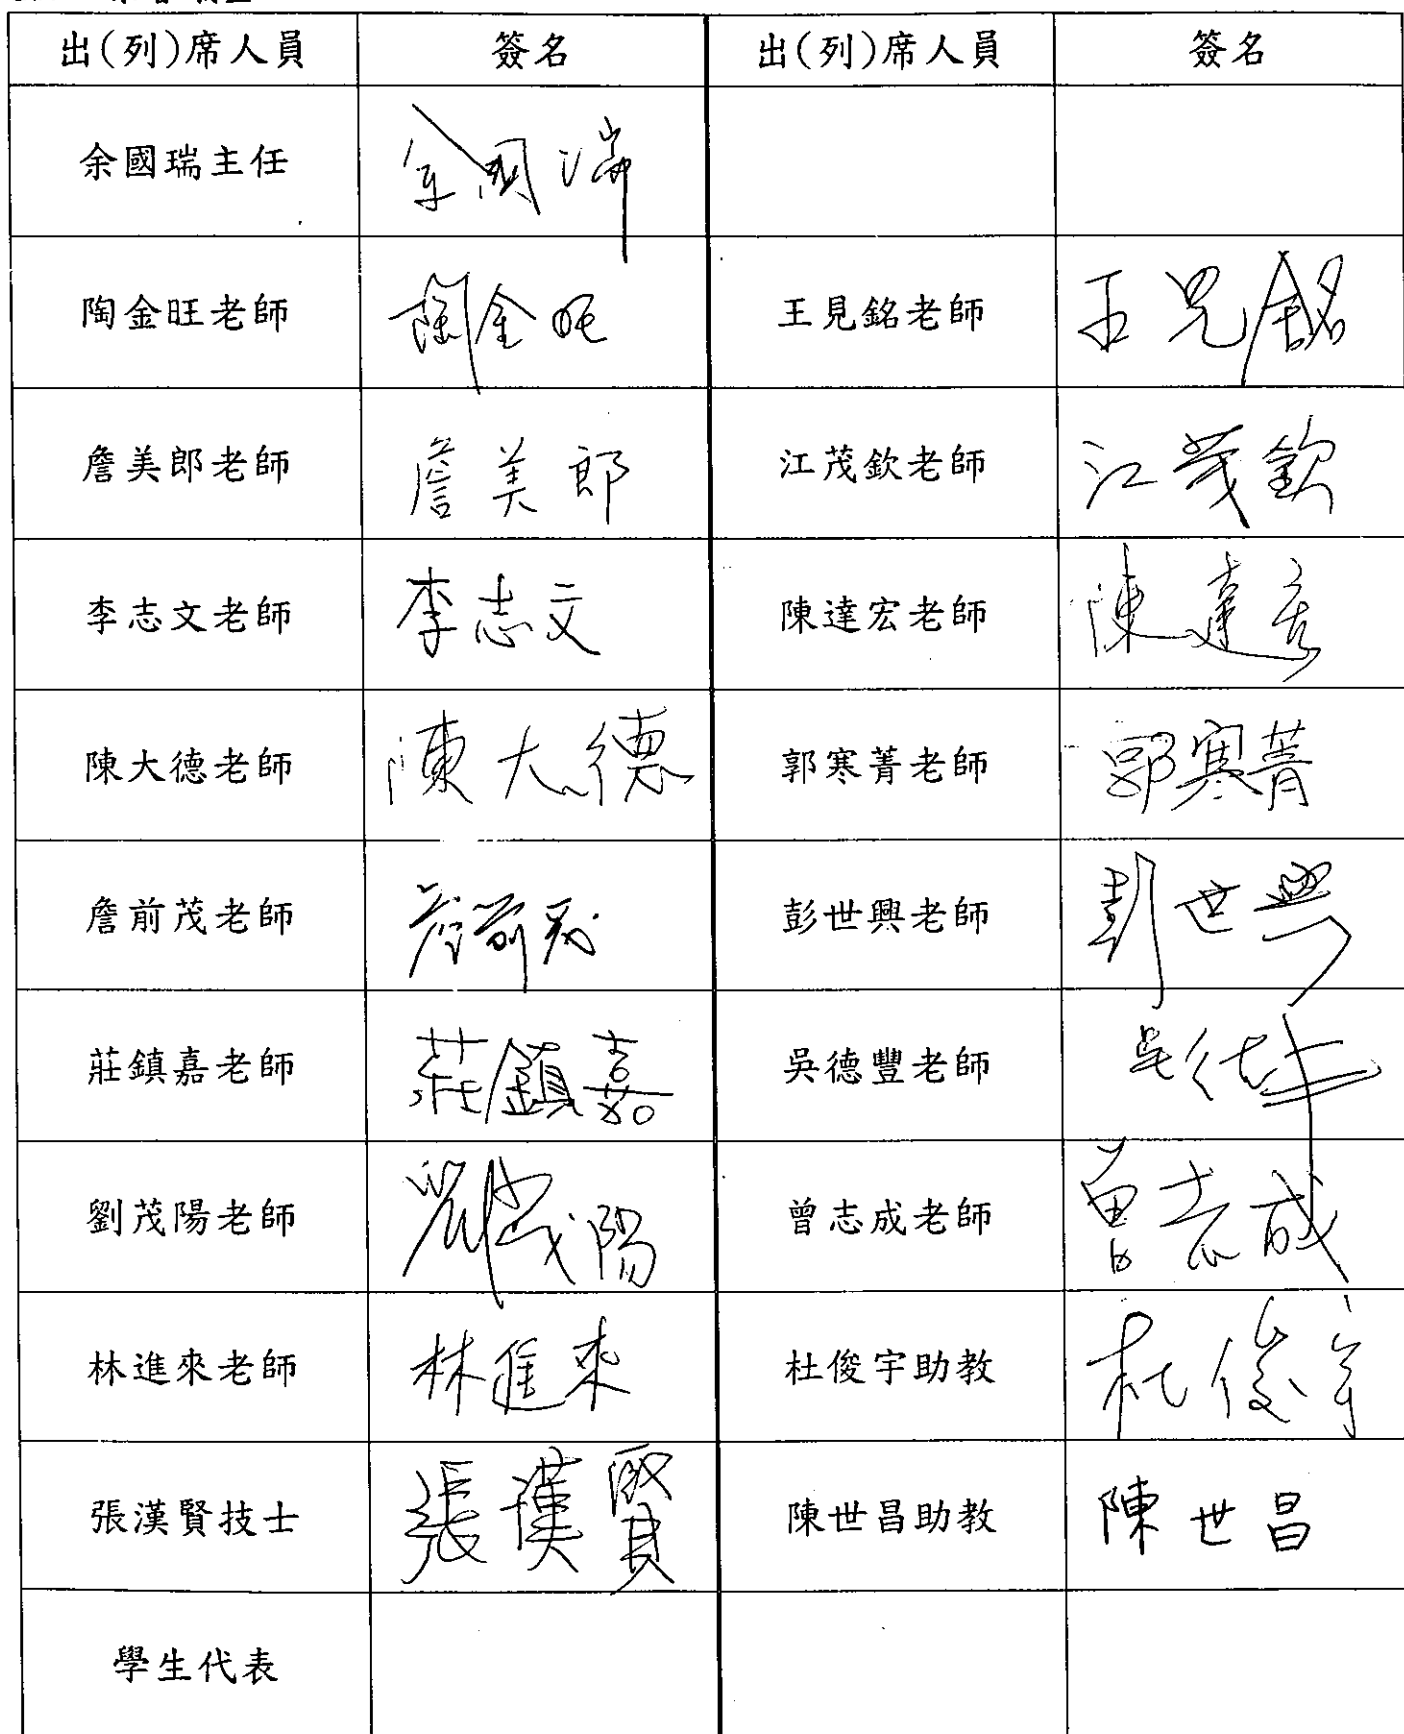 出(列)席人員 簽名 出(列)席人員 簽名
余國瑞主任 余國瑞
陶金旺老師 陶金旺 王見銘老師 王見銘
詹美郎老師 詹美郎 江茂欽老師 江茂欽
李志文老師 李志文 陳達宏老師 陳達宏
陳大德老師 陳大德 郭寒菁老師 郭寒菁
詹前茂老師 詹前茂 彭世興老師 彭世興
莊鎮嘉老師 莊鎮嘉 吳德豐老師 吳德豐
劉茂陽老師 劉茂陽 曾志成老師 曾志成
林進來老師 林進來 杜俊宇助教 杜俊宇
張漢賢技士 張漢賢 陳世昌助教 陳世昌
學生代表